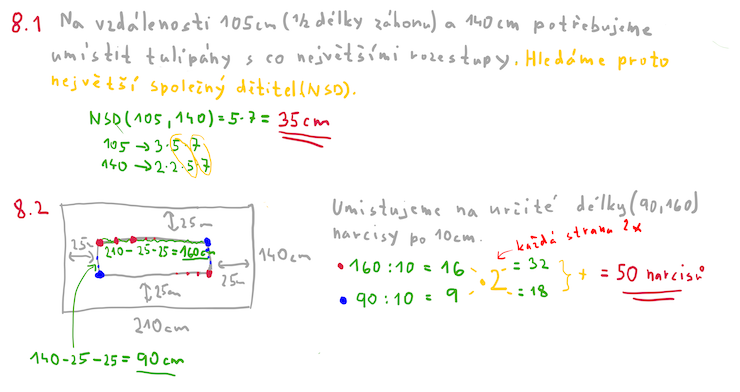 8.1 Na vzdálenosti 105cm (1/2 délky záhonu) a 140cm potřebujeme
umístit tulipány s co největšími rozestupy. Hledáme proto
největší společný dělitel (NSD).
NSD(105, 140) = 5·7 = 35cm
105 → 3·5·7
140 → 2·2·5·7
8.2
Umisťujeme na určité délky (90,160)
narcisy po 10cm.
každá strana 2x
160:10 = 16
90:10 = 9
·2
= 32
= 18
+ = 50 narcisů
25cm
25cm
210-25-25=160cm
140cm
25cm
25cm
210cm
140-25-25= 90cm